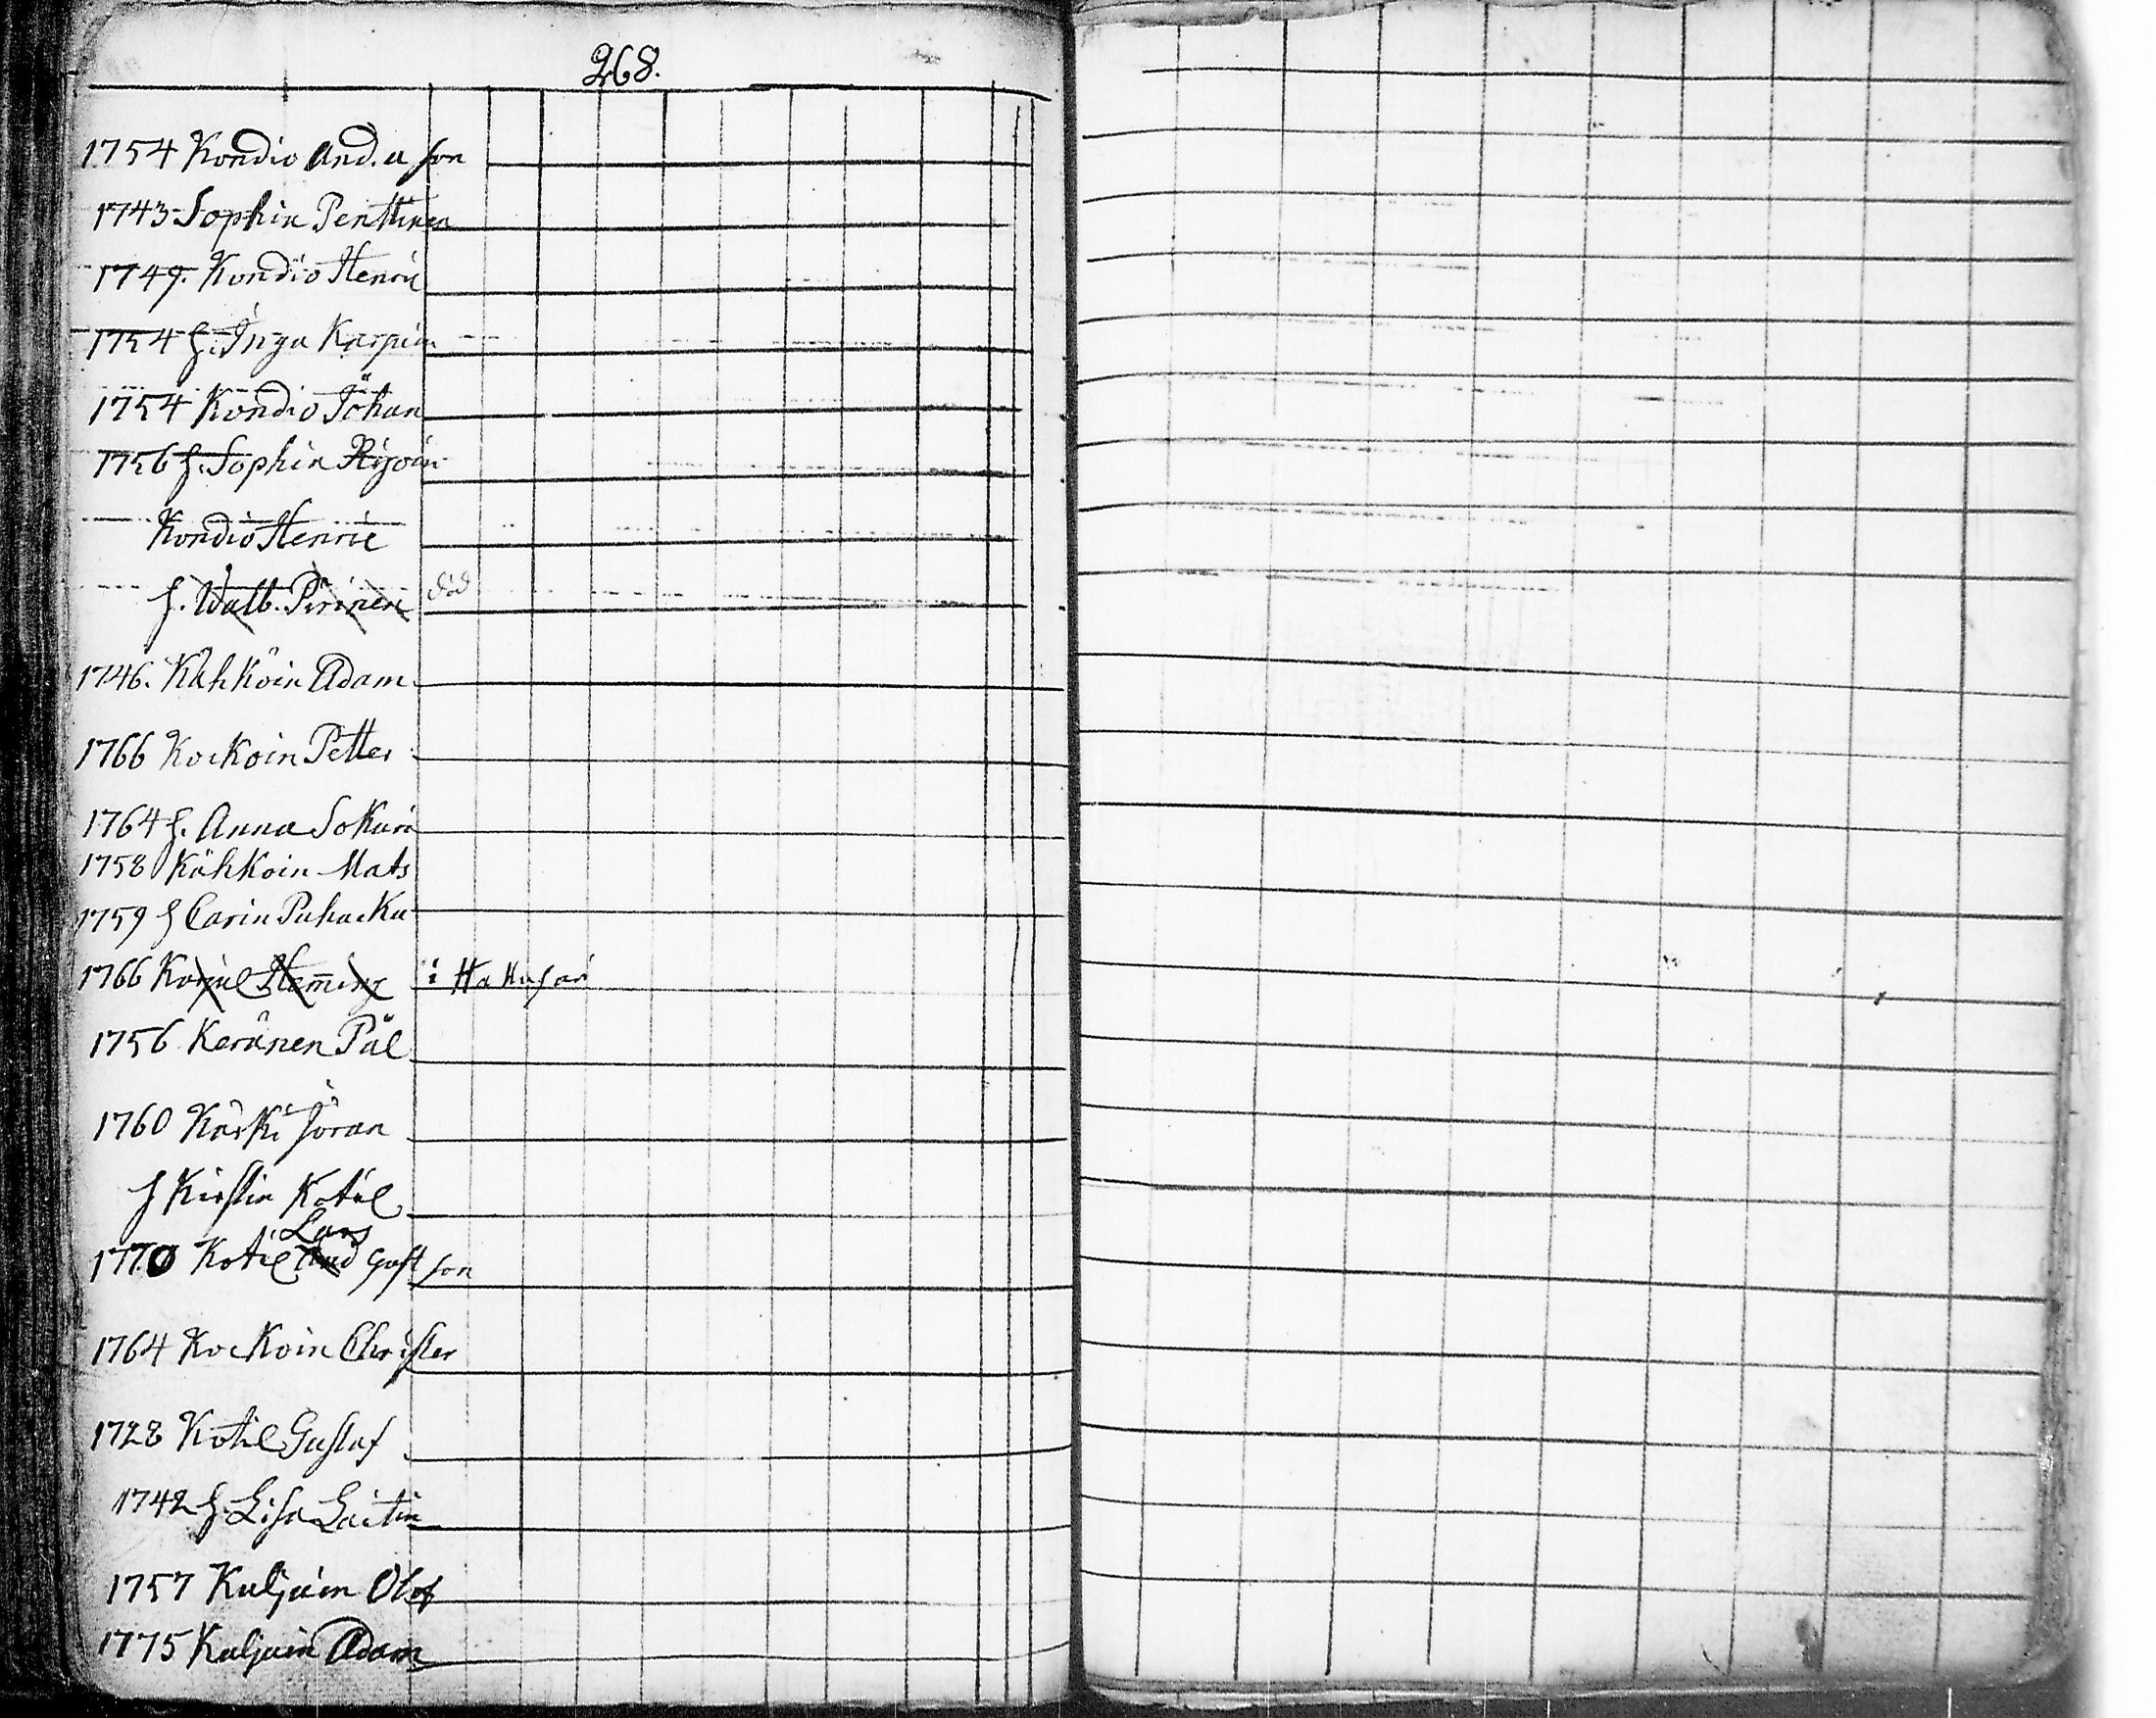 268.
1754 Kondio And.a son
1743 Sophia Penttinen
1749. Kondio Henric
1754 h. Inga Karpin
1754 Kondio Johan
1756 h. Sophia
Kondio Henric
h. Walb. Pirinen död
1746. Kähköin Adam
1766 Kockoin Petter
1764 h. Anna Sokuri
1758 Kähkoin Mats
1759 h Carin Puhacka
1766 i Hakusari
1756 Keränen Pål
1760 Kärki Jöran
h Kirstin Kotil
Lars
1770 Kotil And Gust son
1764 Kockoin Christer
1728 Kotil Gustaf
1742 h. Lisa Laitin
1757 Kuljuin Olof
1775 Kuljuin Adam